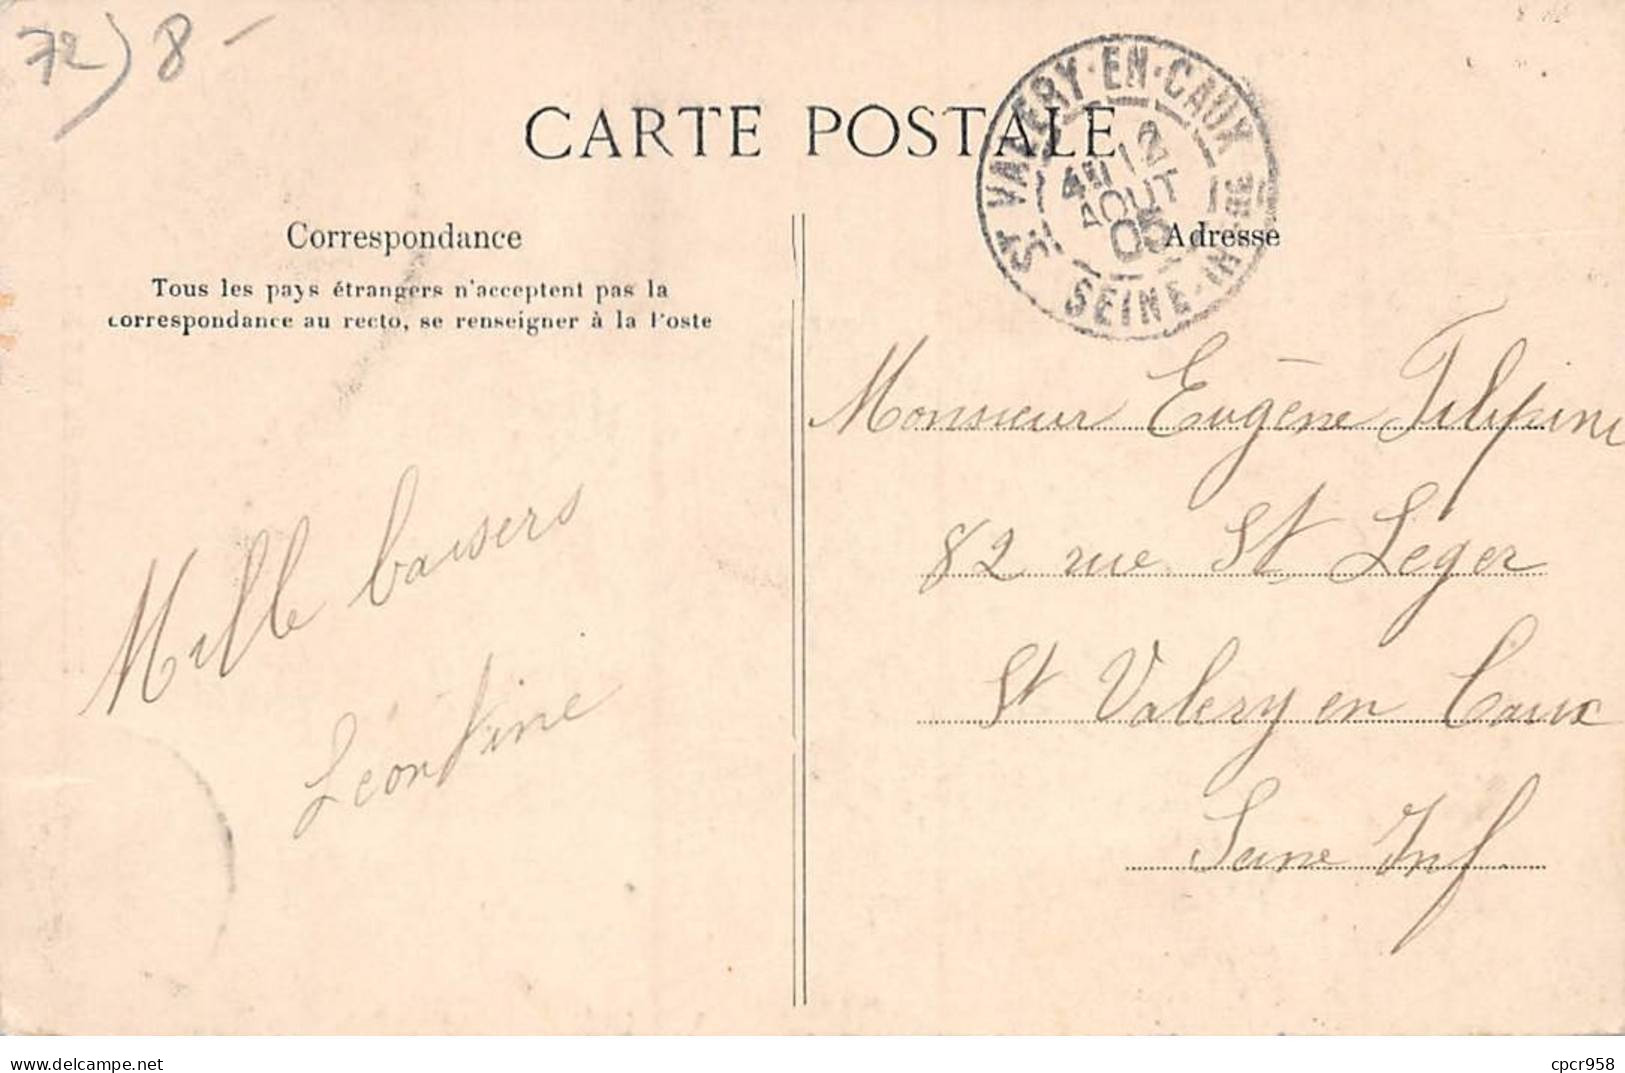 72) 8 -
CARTE POSTALE
ST VALERY-EN-CAUX
12
AOUT
05
SEINE-INFRE
Correspondance
Adresse
Tous les pays étrangers n'acceptent pas la
correspondance au recto, se renseigner à la Poste
Monsieur Eugène Filipini
82 rue St Leger
St Valery en Caux
Seine Inf.
Mille baisers
Léontine
delcampe.net
cpcr958